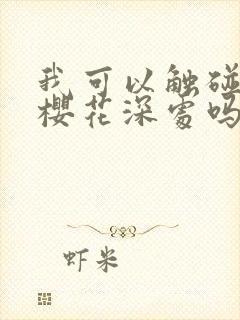 我可以触碰
樱花深处吗
虾米